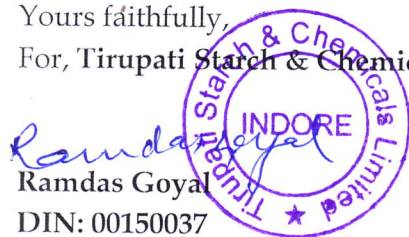 Yours faithfully,
For, Tirupati Starch & Chemic
Tirupati Starch & Chemicals Limited ★
INDORE
Ramdas Goyal
Ramdas Goyal
DIN: 00150037